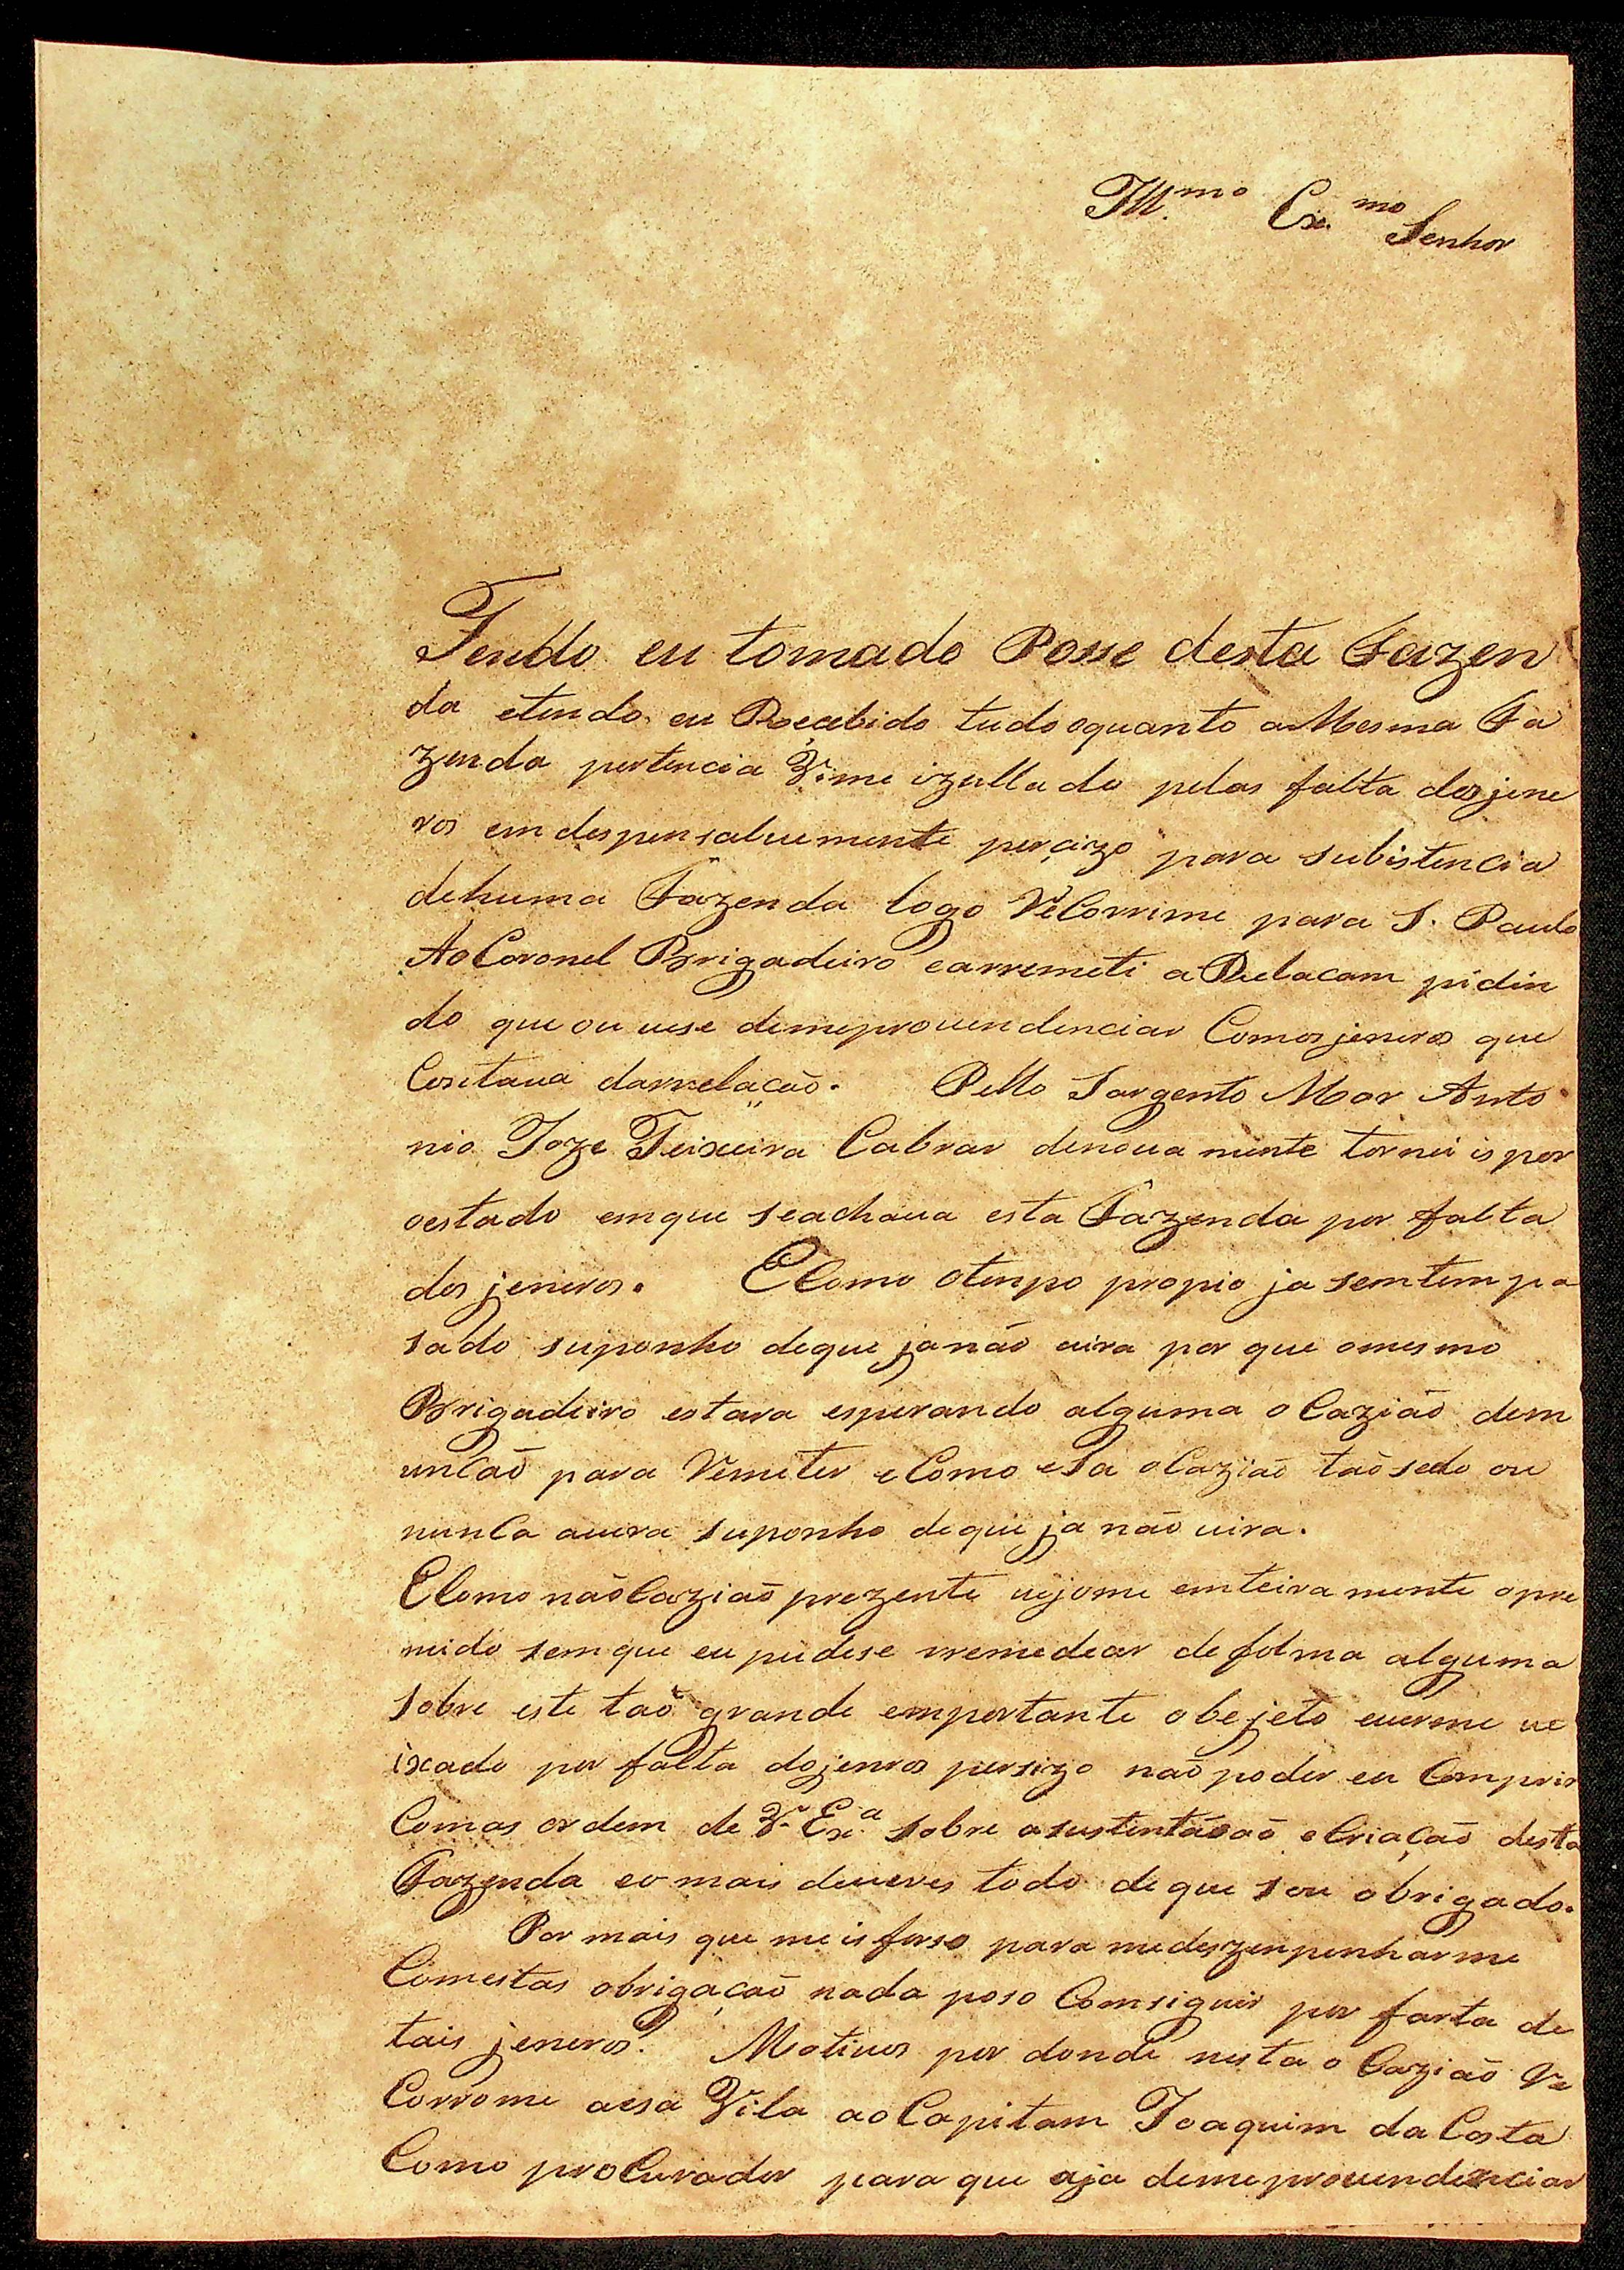 Ill.mo Ex.mo Senhor
Tendo eu tomado Posse desta Fazen
da etendo eu Recebido tudo oquanto a Mesma Fa
zenda pertencia Vime izullado pelas falta dosjene
ros emdespensaluemente perçizo para subistencia
dehuma Fazenda logo ReCorrime para S. Paulo
Ao Coronel Brigadeiro earremeti a Rellacam pidin
do que ouuese demeprouendenciar Comosjeneros que
Contaua darrelação. Pello Sargento Mor Anto
nio Joze Teixeira Cabrar denoua mente tornei is por
oestado emque seachaua esta Fazenda por falta
dos jeneros. EComo otenpo propio ja semtem pa
sado suponho deque janão uira por que omesmo
Brigadeiro estara esperando alguma oCazião dem
unCaõ para Remeter eComo esa oCazião taõ sedo ou
nunCa auera suponho deque ja não uira.
EComo nãoCazião prezente uejome emteira mente opre
mido semque eu pudese rremedear de folma alguma
sobre este taõ grande emportante obejeto euerme ue
ixado por falta dojenros persizo naõ poder eu Comprir
Comas ordem de V. Ex.a sobre asustentãsaõ eCriaçaõ desta
Fazenda eo mais deueres todo de que sou obrigado.
Por mais que me is forso para medezenpenharme
Comestas obrigaçaõ nada poso Comsiguir por farta de
tais jeneros. Motiuos por donde nesta oCazião Re
Corrome aesa Vila aoCapitam Joaquim da Costa
Como proCurador para que aja demeprouendenciar